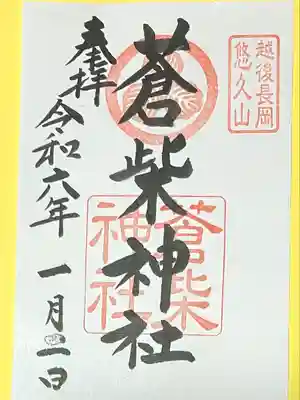 越後長岡
悠久山
蒼柴神社
蒼柴
神社
奉拝
令和六年 一月二日